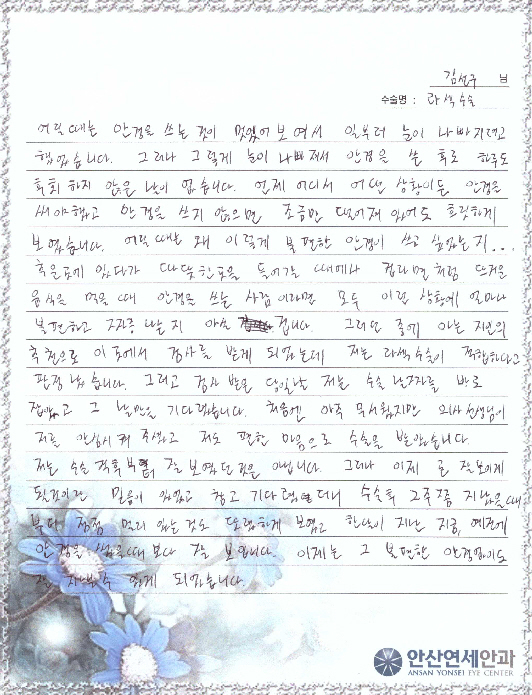 김선구 님
수술명 : 라섹수술
어릴 때는 안경을 쓰는 것이 멋있어 보여서 일부러 눈이 나빠지려고
했었습니다. 그러나 그렇게 눈이 나빠져서 안경을 쓴 후로 하루도
후회 하지 않은 날이 없습니다. 언제 어디서 어떤 상황이든 안경은
써야했고 안경을 쓰지 않으면 조금만 떨어져 있어도 흐릿하게
보였습니다. 어릴 때는 왜 이렇게 불편한 안경이 쓰고 싶었는지...
추운곳에 있다가 따뜻한곳을 들어가는 때에나 컵라면처럼 뜨거운
음식을 먹을 때 안경을 쓰는 사람이라면 모두 이런 상황에 얼마나
불편하고 짜증 날 지 아실 겁니다. 그러던 중에 아는 지인의
추천으로 이 곳에서 검사를 받게 되었는데 저는 라섹수술이 적합하다고
판정 났습니다. 그리고 검사 받은 당일날 저는 수술 날짜를 바로
잡았고 그 날만을 기다렸습니다. 처음엔 아주 무서웠지만 의사선생님이
저를 안심시켜 주셨고 저도 편한 마음으로 수술을 받았습니다.
저는 수술 직후부터 잘 보였던 것은 아닙니다. 그러나 이제 곧 잘 보이게
될것이란 믿음이 있었고 참고 기다렸더니 수술후 2주쯤 지났을때
부터 점점 멀리 있는것도 또렷하게 보였고 한달이 지난 지금, 예전에
안경을 썼을때 보다 잘 보입니다. 이제는 그 불편한 안경없이도
잘 지낼수 있게 되었습니다.
안산연세안과
ANSAN YONSEI EYE CENTER